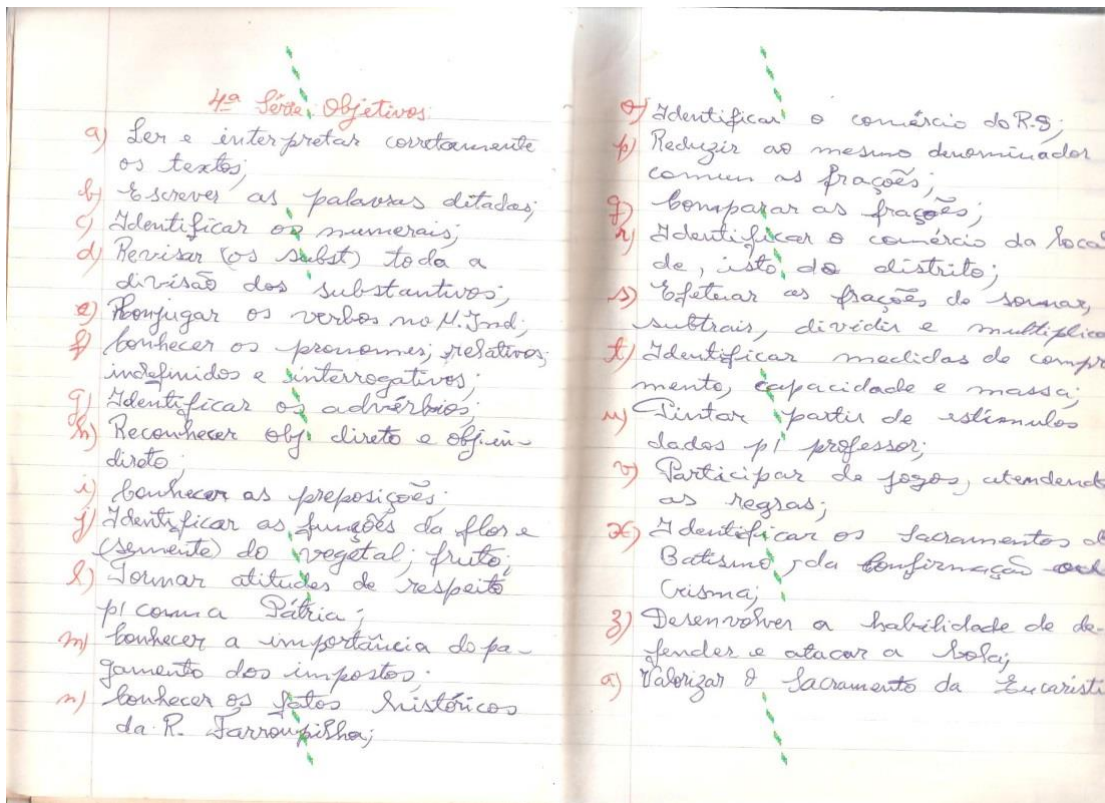 4ª Série: Objetivos:
a) Ler e interpretar corretamente
os textos;
b) Escrever as palavras ditadas;
c) Identificar os numerais;
d) Revisar (os subst) toda a
divisão dos substantivos;
e) Conjugar os verbos no M. Ind;
f) Conhecer os pronomes; relativos;
indefinidos e interrogativos;
g) Identificar os advérbios;
h) Reconhecer obj. direto e obj. in-
direto;
i) Conhecer as preposições;
j) Identificar as funções da flor e
(semente) do vegetal; fruto;
l) Tormar atitudes de respeito
p/ com a Pátria;
m) Conhecer a importância do pa-
gamento dos impostos;
n) Conhecer os fatos históricos
da R. Farroupilha;
o) Identificar o comércio do R.S;
p) Reduzir ao mesmo denominador
comum as frações;
q) Comparar as frações;
r) Identificar o comércio da loca
de, isto do distrito;
s) Efetuar as frações de somar,
subtrair, dividir e multiplica
t) Identificar medidas de compr
mento, capacidade e massa;
u) Pintar partir de estímulos
dados p/ professor;
v) Participar de jogos, atendendo
as regras;
x) Identificar os Sacramentos d
Batismo, da Confirmação ou
Crisma;
z) Desenvolver a habilidade de de-
fender e atacar a bola;
a) Valorizar o Sacramento da Eucaristi